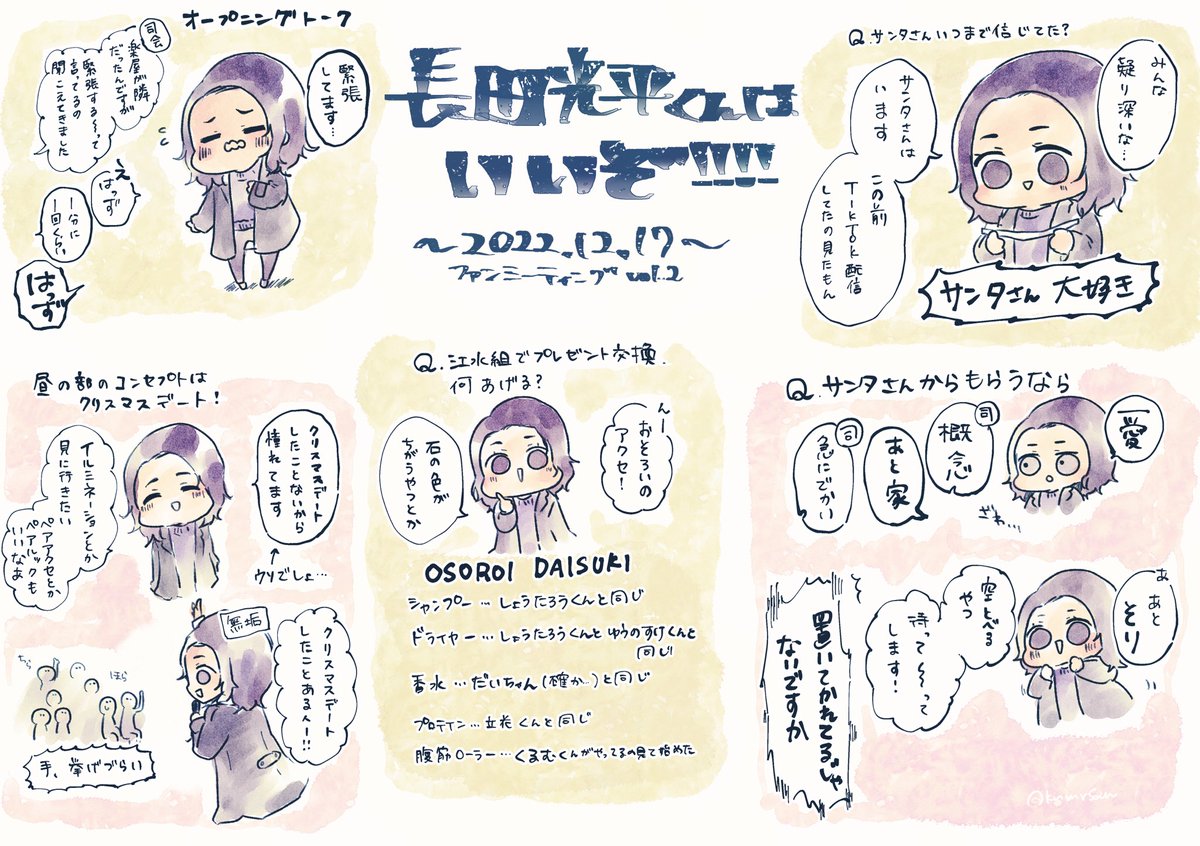 オープニングトーク
緊張
してます…
司会
楽屋が隣
だったんですが
緊張する〜って
言ってるの
聞こえてきました
え
はっず
1分に
1回くらい
はっず
長田光平くんは
いいぞ!!!!
〜2022.12.17〜
ファンミーティング vol.2
Q.サンタさんいつまで信じてた?
みんな
疑り深いな…
サンタさんは
います
この前
TikTok配信
してたの見たもん
サンタさん 大好き
昼の部のコンセプトは
クリスマスデート!
クリスマスデート
したことないから
憧れてます
↑
ウソでしょ…
イルミネーションとか
見に行きたい
ペアアクセとか
ペアルックも
いいなあ
無垢
クリスマスデート
したことある人ー!!
ちら
ほら
手、挙げづらい
Q.江水組でプレゼント交換.
何あげる?
んー
おそろいの
アクセ!
石の色が
ちがうやつとか
OSOROI DAISUKI
シャンプー…しょうたろうくんと同じ
ドライヤー…しょうたろうくんとゆうのすけくんと
同じ
香水…だいちゃん(確か…)と同じ
プロテイン…立花くんと同じ
腹筋ローラー…くるむくんがやってるの見て始めた
Q.サンタさんからもらうなら
愛
司
概念
あと家
司
急にでかい
ざわ…
あ あと
そり
空とべる
やつ
待って〜〜って
します!
置いてかれてるじゃ
ないですか